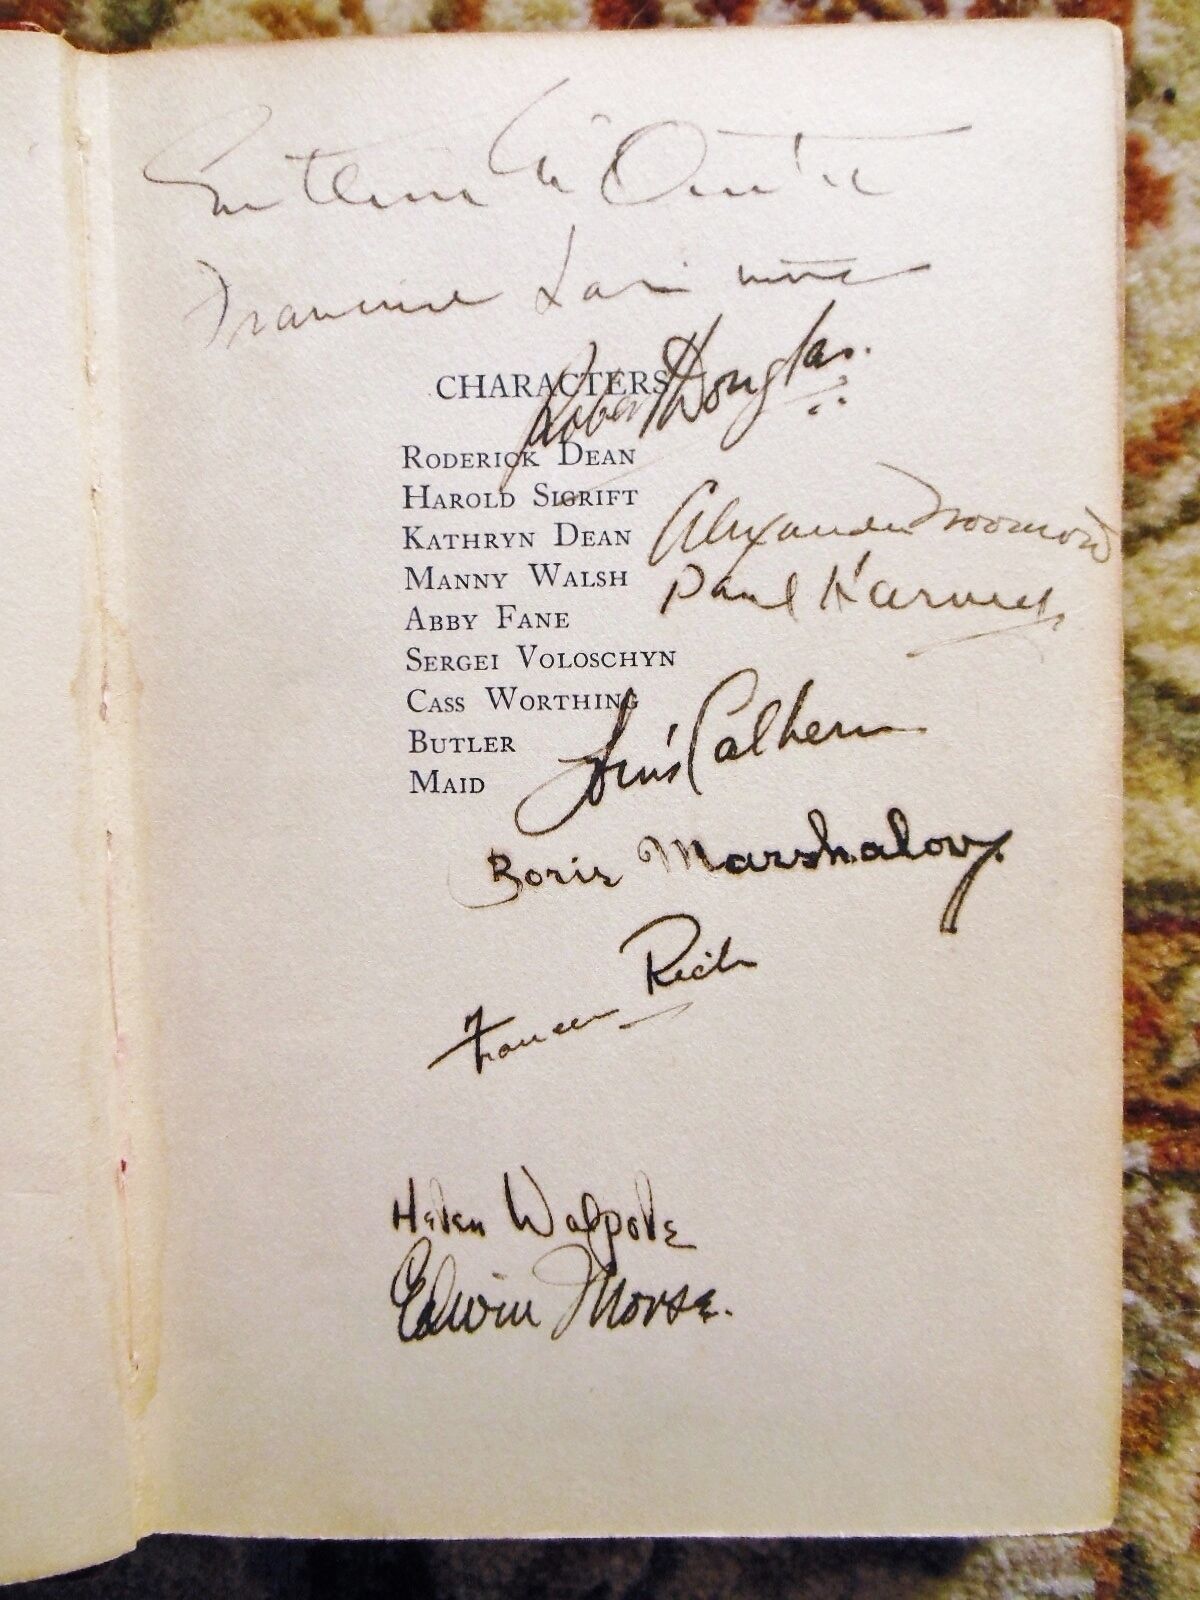 Guthrie McClintic
Francine Larrimore
Robert Douglas.
CHARACTERS
RODERICK DEAN
HAROLD SIGRIFT
KATHRYN DEAN
Alexander Woollcott
MANNY WALSH
Paul Harvey
ABBY FANE
SERGEI VOLOSCHYN
CASS WORTHING
BUTLER
Louis Calhern
MAID
Boris Marshalov.
Frances Rich
Helen Walpole
Edwin Morse.